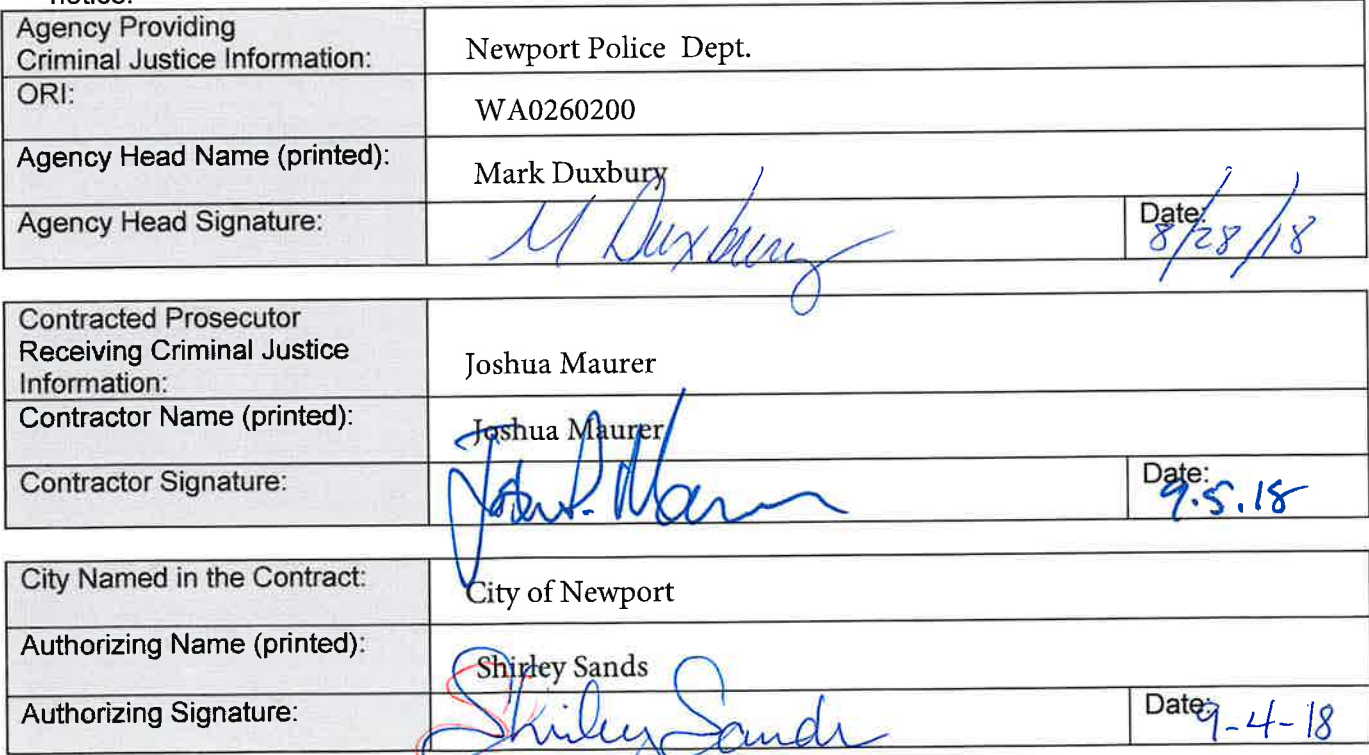 notice.
Agency Providing
Criminal Justice Information:
Newport Police Dept.
ORI:
WA0260200
Agency Head Name (printed):
Mark Duxbury
Agency Head Signature:
M Duxbury
Date:
8/28/18
Contracted Prosecutor
Receiving Criminal Justice
Information:
Joshua Maurer
Contractor Name (printed):
Joshua Maurer
Contractor Signature:
Date:
9.5.18
City Named in the Contract:
City of Newport
Authorizing Name (printed):
Shirley Sands
Authorizing Signature:
Shirley Sands
Date:
9-4-18